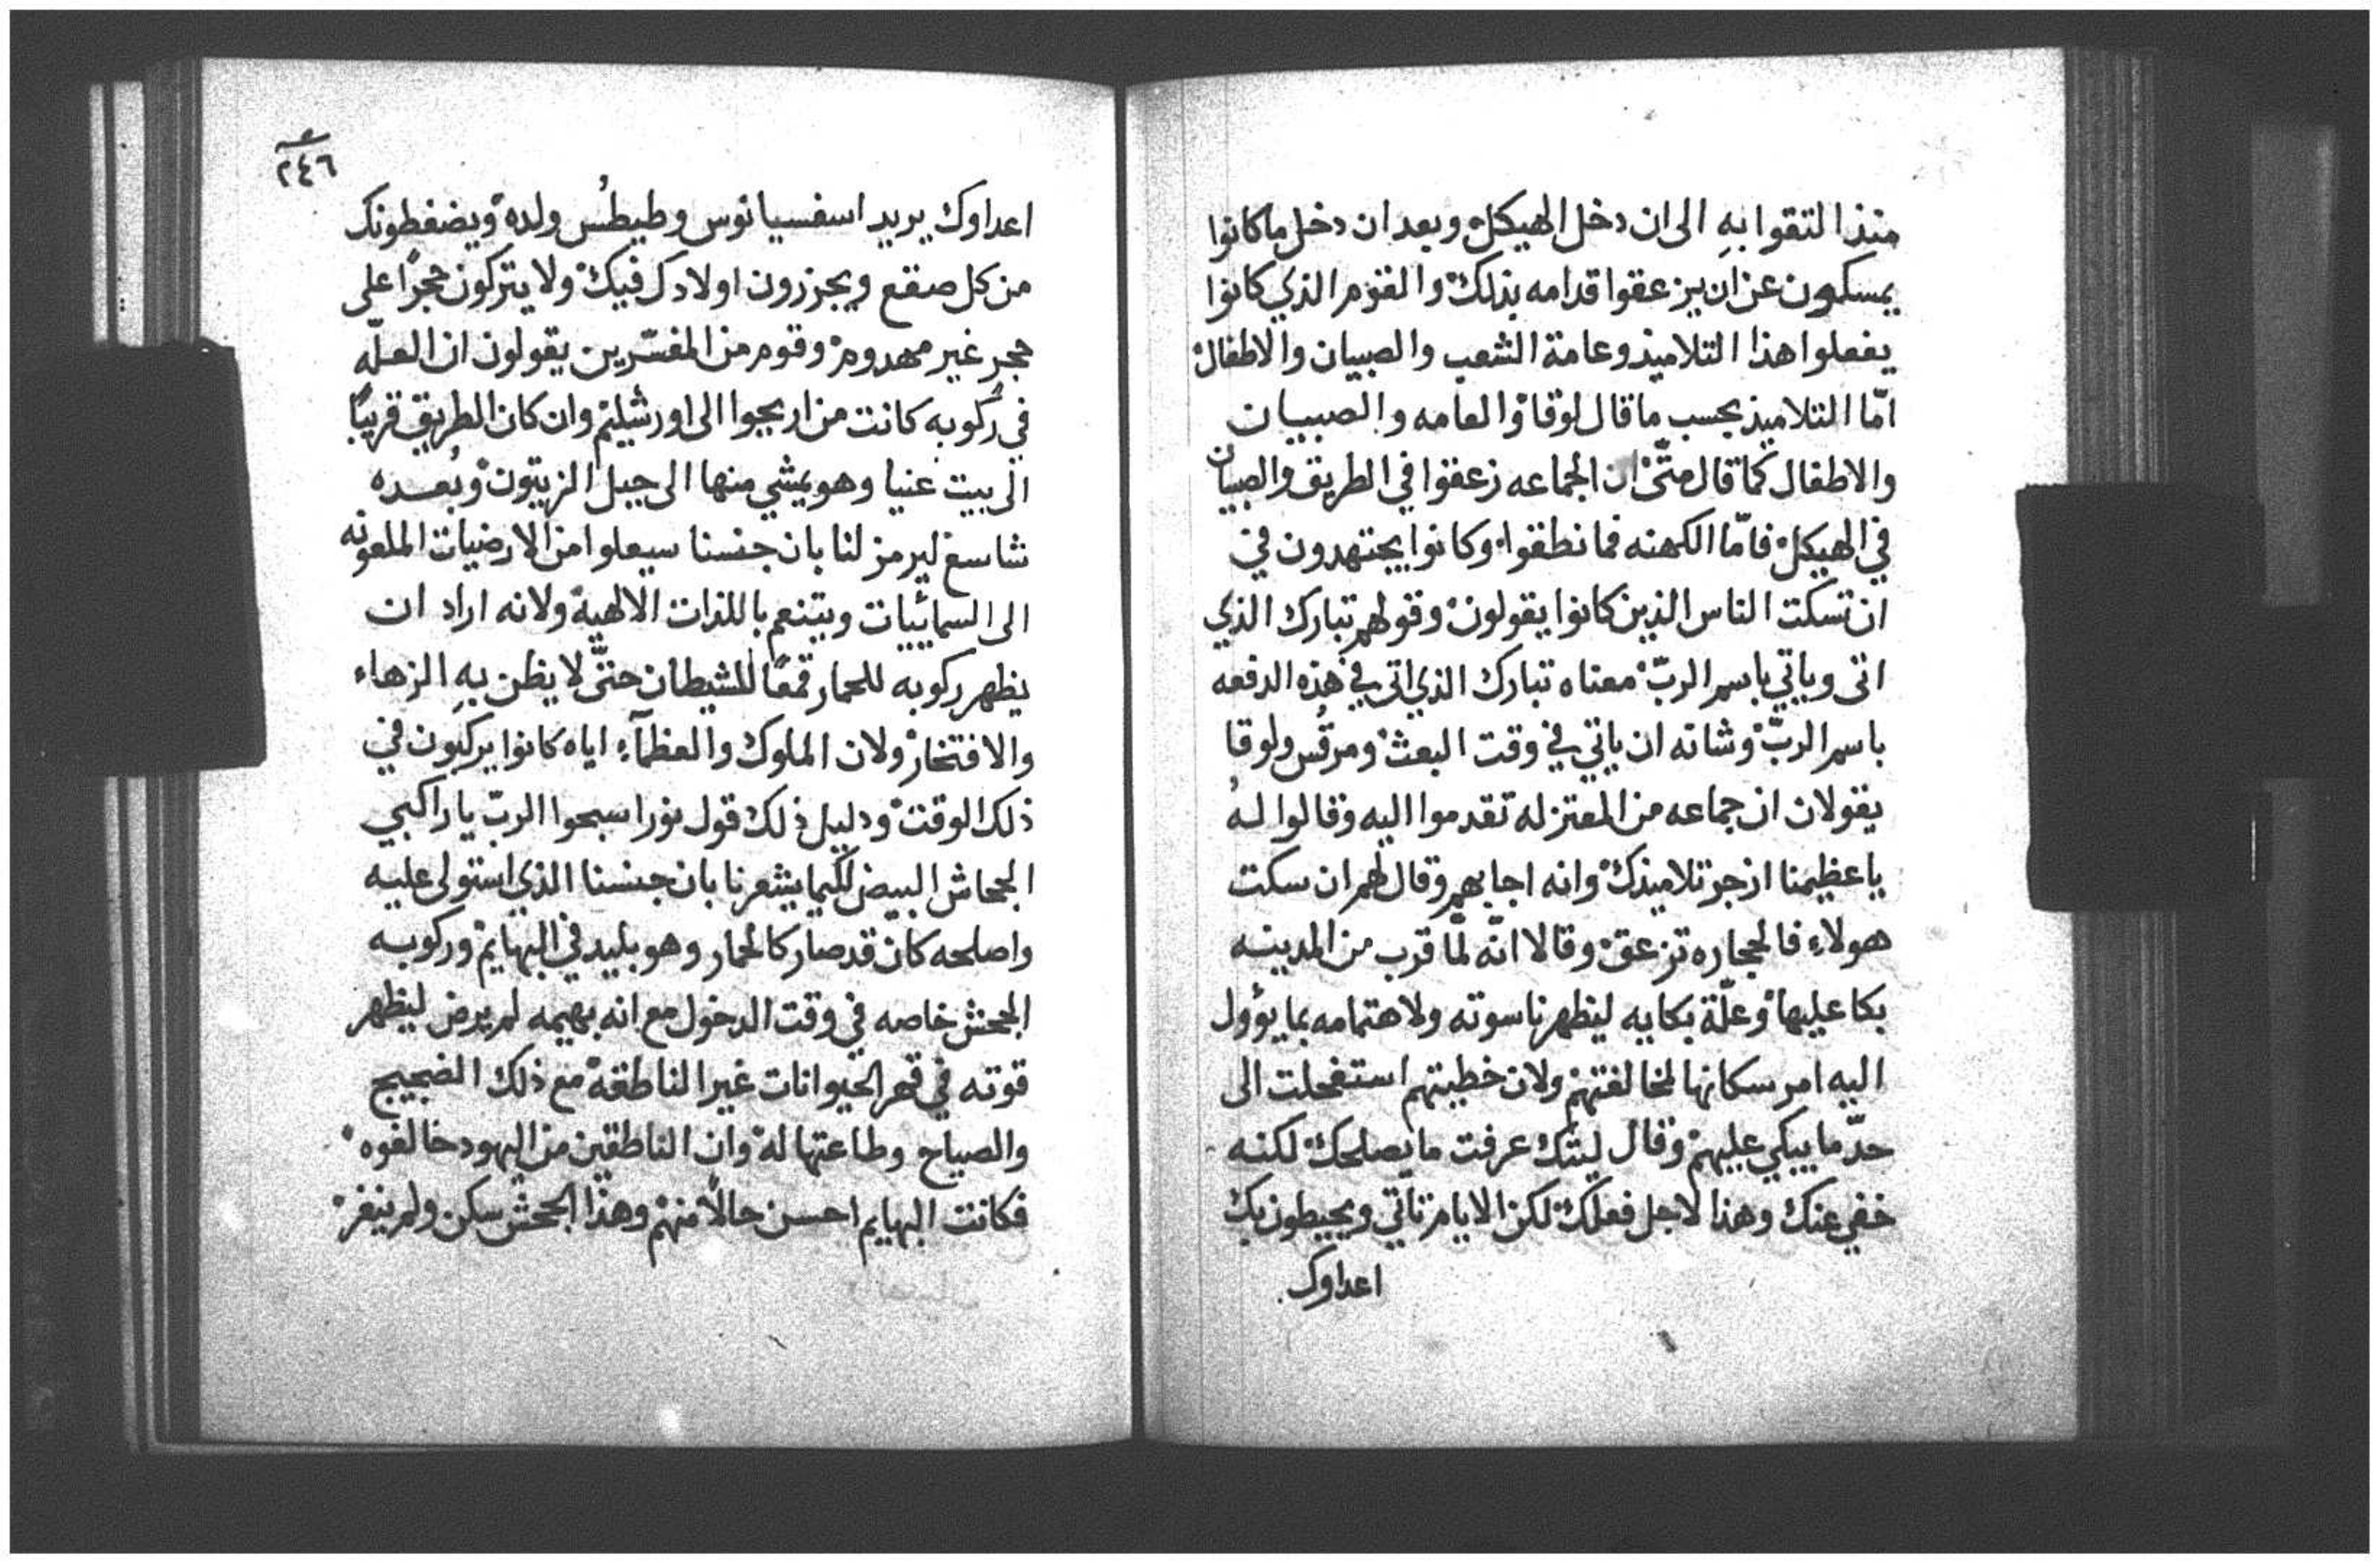 منذ التقوا بهِ الى ان دخل الهيكل وبعد ان دخل ما كانوا
يمسكون عن ان يزعقوا قدامه بذلك والقوم الذي كانوا
يفعلوا هذا التلاميذ وعامة الشعب والصبيان والاطفال
امّا التلاميذ بحسب ما قال لوقا والعامه والصبيان
والاطفال كما قال متّى ان الجماعه زعقوا في الطريق والصبيان
في الهيكل فامّا الكهنه فما نطقوا وكانوا يجتهدون في
ان تسكت الناس الذين كانوا يقولون وقولهم تبارك الذي
اتى وياتي باسم الربّ معناه تبارك الذي اتى في هذه الدفعه
باسم الربّ وشانه ان ياتي في وقت البعث ومرقُس ولوقا
يقولان ان جماعه من المعتزله تقدموا اليه وقالوا لهُ
يا عظيمنا ازجر تلاميذك وانه اجابهم وقال لهم ان سكت
هولاءِ فالحجاره تزعق وقالا انّه لمّا قرب من المدينه
بكا عليها وعلّة بكايه ليظهر ناسوته ولاهتمامه بما يوؤل
اليه امر سكانها لمخالفتهم ولان خطيتهم استفحلت الى
حدّ ما يبكي عليهم وقال ليتك عرفت ما يصلحك لكنه
خفي عنك وهذا لاجل فعلك لكن الايام تاتي ويحيطون بك
اعداوك
٢٤٦
اعداوك يريد اسفسيانوس وطيطُس ولده ويضغطونك
من كل صقع ويجزرون اولادك فيك ولا يتركون حجرًا على
حجر غير مهدوم وقوم من المفسّرين يقولون ان العلّه
في ركوبه كانت من اريحوا الى اورشليم وان كان الطريق قريبًا
الى بيت عنيا وهو يمشي منها الى جبل الزيتون وبُعده
شاسع ليرمز لنا بان جنسنا سيعلوا من الارضيات الملعونه
الى السمائييات ويتنعم باللذات الالهية ولانه اراد ان
يظهر ركوبه للحمار قمعًا للشيطان حتّى لا يظن بهِ الزهاء
والافتخار ولان الملوك والعظمآءِ اياه كانوا يركبون في
ذلك الوقت ودليل ذلك قول نورا سبحوا الربّ يا راكبي
الجحاش البيض لكيما يشعرنا بان جنسنا الذي استولى عليه
واصلحه كان قد صار كالحمار وهو بليد في البهايم وركوبه
الجحش خاصه في وقت الدخول مع انه بهيمه لم يرض ليظهر
قوته في قهر الحيوانات غير الناطقة مع ذلك الضجيج
والصياح وطاعتها له وان الناطقين من اليهود خالفوه
فكانت البهايم احسن حالاً منهم وهذا الجحش سكن ولم ينفر